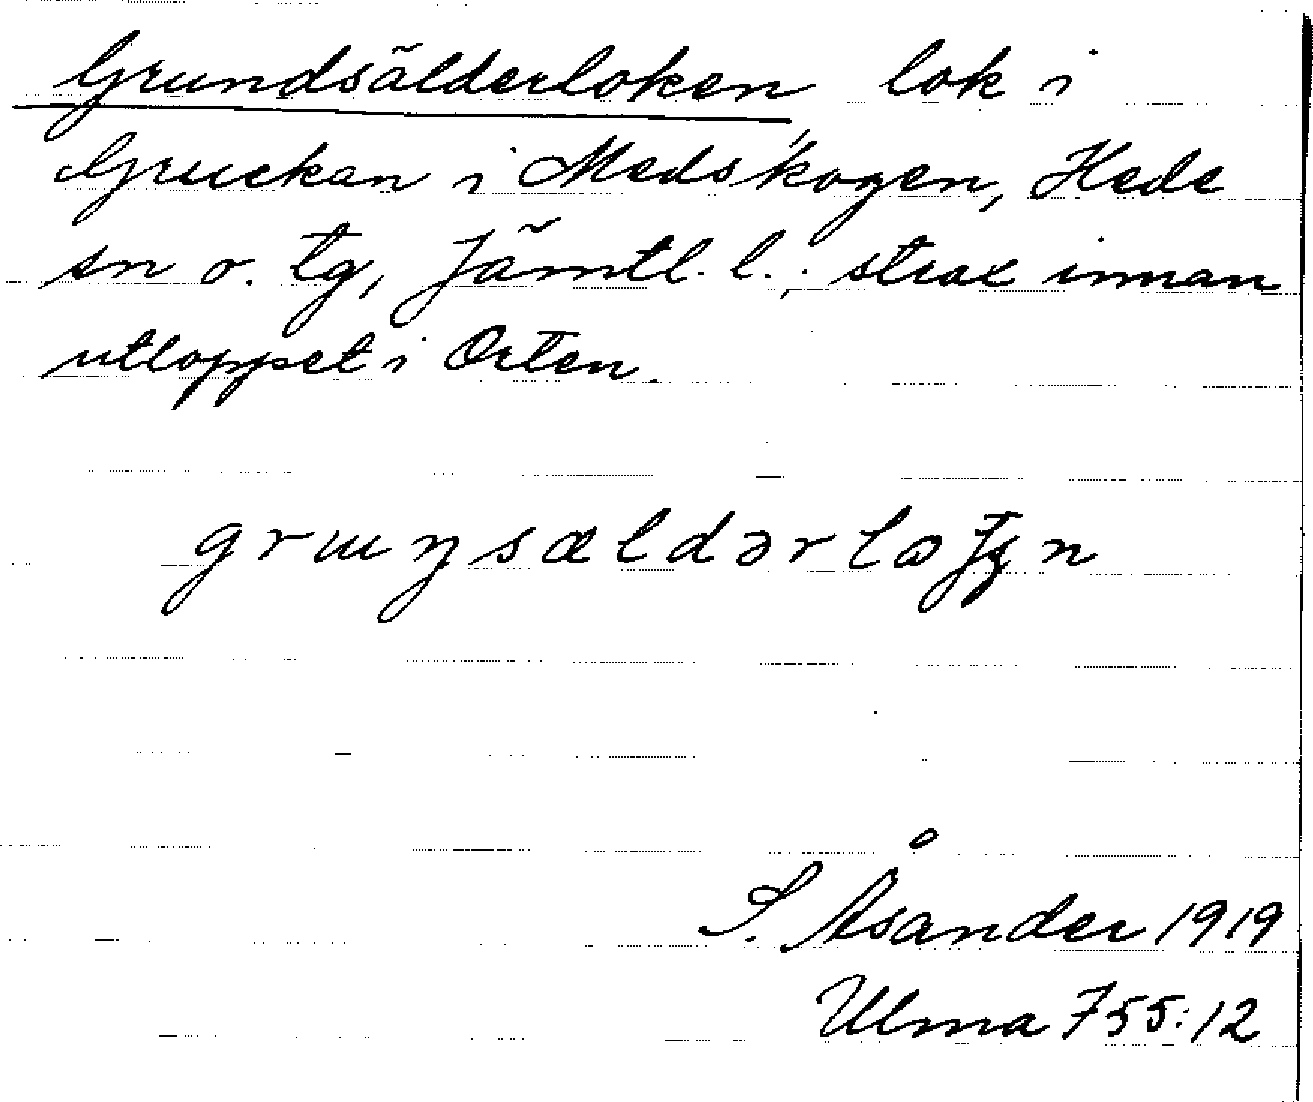 Grundsälderloken lok i
Gruckan i Medskogen, Hede
sn o. tg, Jämtl. l., strax innan
utloppet i Orten.
S. Åsander 1919
Ulma 755:12